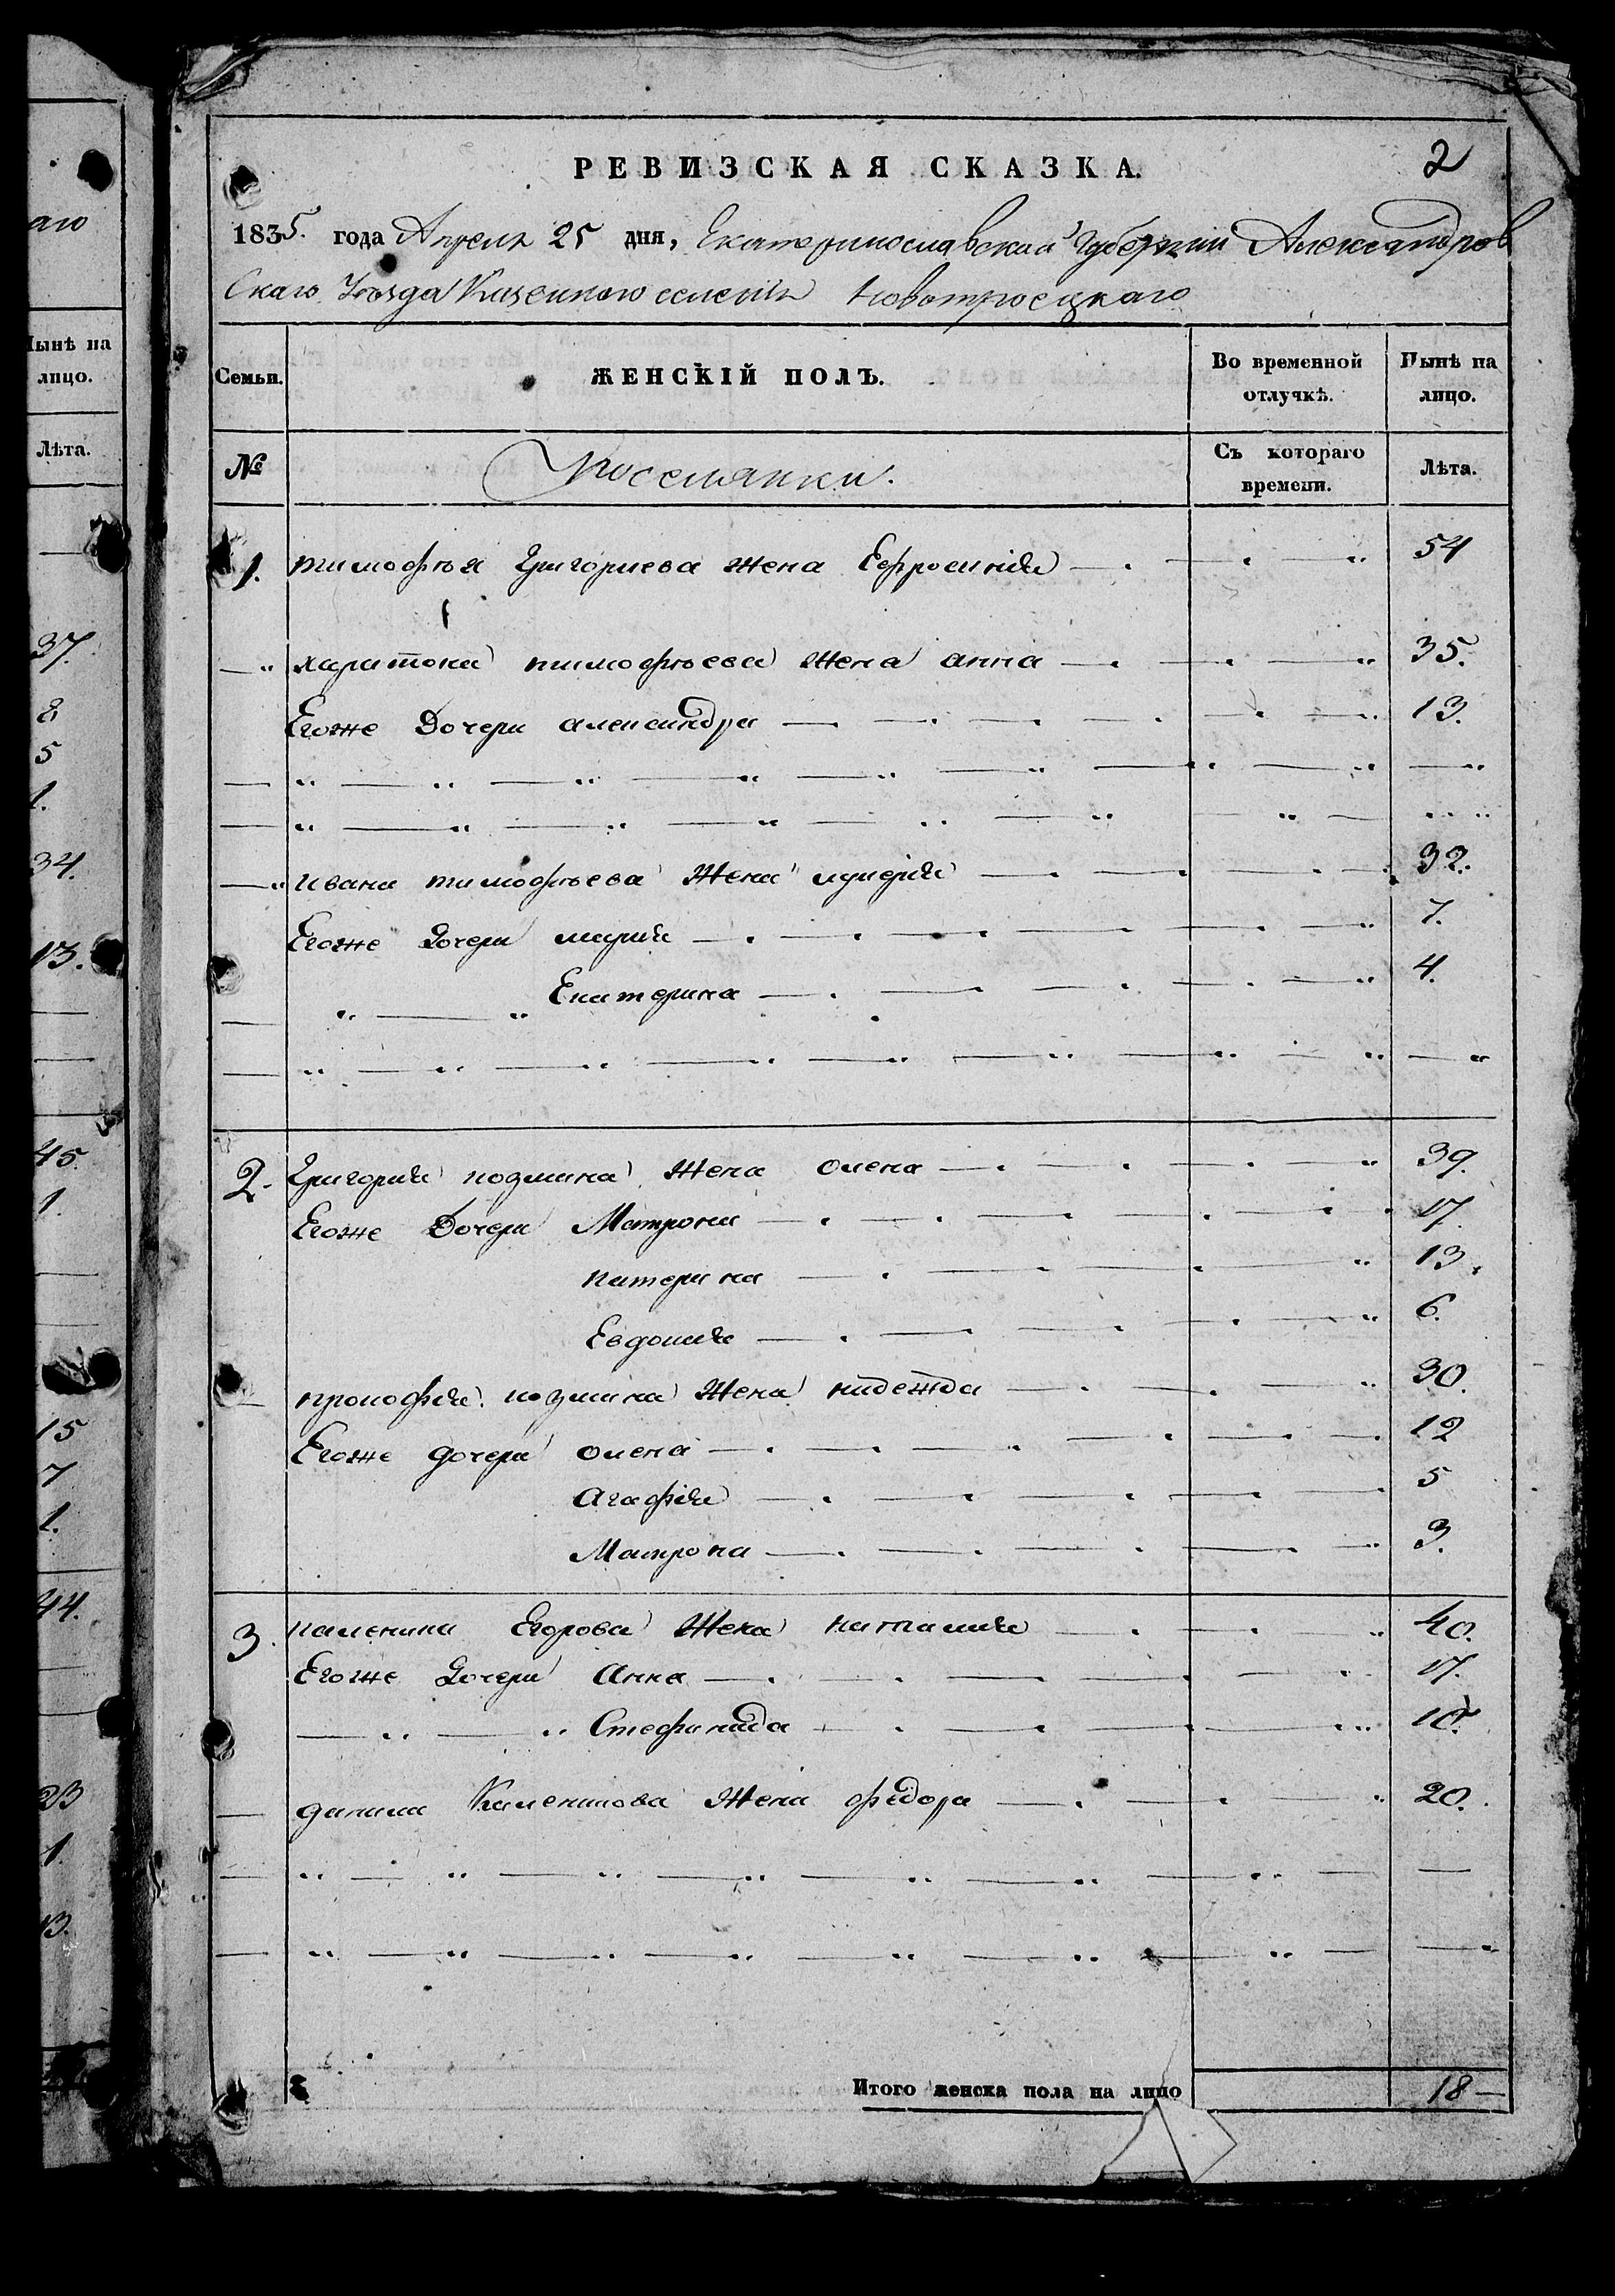 аго
Нынѣ на
лицо.
Лѣта.
37.
8
5
1.
34.
13.
45.
1.
15
7
1.
44.
23
1.
13.
РЕВИЗСКАЯ СКАЗКА. 2
1835. года Апреля 25 дня, Екатеринославской Губерніи Александров
скаго Уезда Казенного селенія Новотроецкаго
Семьи. ЖЕНСКІЙ ПОЛЪ. Во временной отлучкѣ. Нынѣ на лицо.
№ Поселянки. Съ котораго времени. Лѣта.
1. тимофѣя Григориева жена Ефросинія 54
харитона тимофѣева жена анна 35.
Егоже Дочери александра 13.
ивана тимофѣева жена лукерія 32.
Егоже Дочери мария 7.
Екатерина 4.
2. Григория козмина жена олена 39.
Егоже Дочери Матрона 17.
катерина 13.
Евдокия 6.
прокофия козмина жена надежда 30.
Егоже дочери олена 12
Агафия 5
Матрона 3.
3. каленика Егорова жена наталия 40.
Егоже Дочери Анна 17.
Стефанида 10.
данила Каленикова жена федора 20.
Итого женска пола на лицо 18